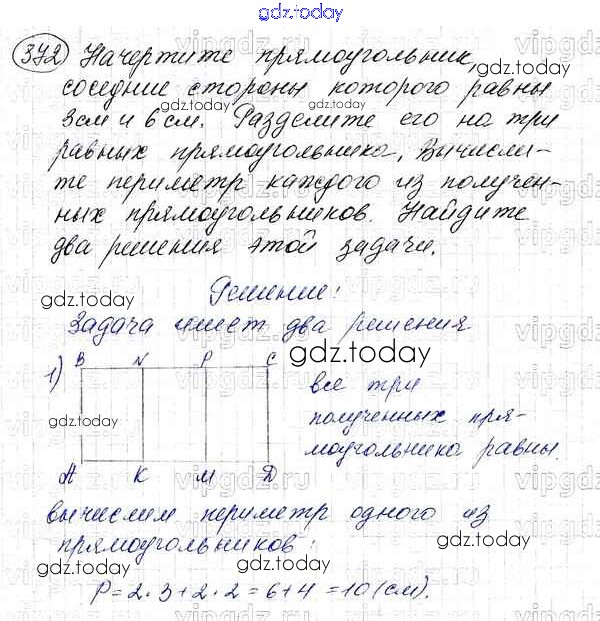 gdz.today
372 Начертите прямоугольник,
соседние стороны которого равны
3см и 6см. Разделите его на три
равных прямоугольника. Вычисли-
те периметр каждого из получен-
ных прямоугольников. Найдите
два решения этой задачи.
Решение:
Задача имеет два решения
1) B N P C
все три
полученных пря-
моугольника равны
A K M D
вычислим периметр одного из
прямоугольников:
P = 2·3+2·2=6+4=10(см).